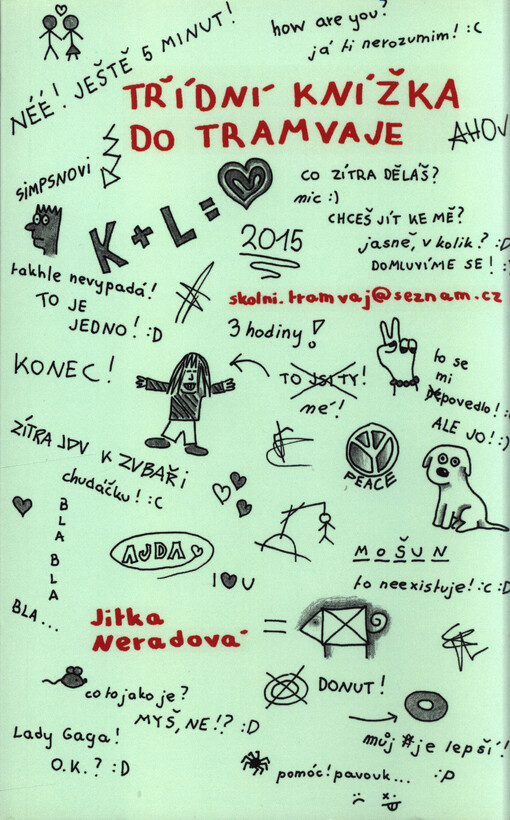 how are you?
já ti nerozumím! :C
NÉÉ! JEŠTĚ 5 MINUT!
TŘÍDNÍ KNÍŽKA
DO TRAMVAJE
AHOJ
SIMPSNOVI
K + L =
CO ZÍTRA DĚLÁŠ?
nic :)
CHCEŠ JÍT KE MĚ?
jasně, v kolik? :D
DOMLUVÍME SE! :)
2015
takhle nevypadá!
TO JE
JEDNO! :D
skolni.tramvaj@seznam.cz
3 hodiny!
KONEC!
TO JSI TY!
né!
to se
mi
povedlo! :
ALE JO! :)
ZÍTRA JDU K ZUBAŘI
chudáčku! :C
PEACE
BLA BLA
BLA...
AJDA
I U
MOŠUN
to neexistuje! :C :D
Jitka
Neradová
=
co to jako je?
MYŠ, NE!? :D
DONUT!
můj # je lepší!
Lady Gaga!
O.K.? :D
pomóc! pavouk... :P